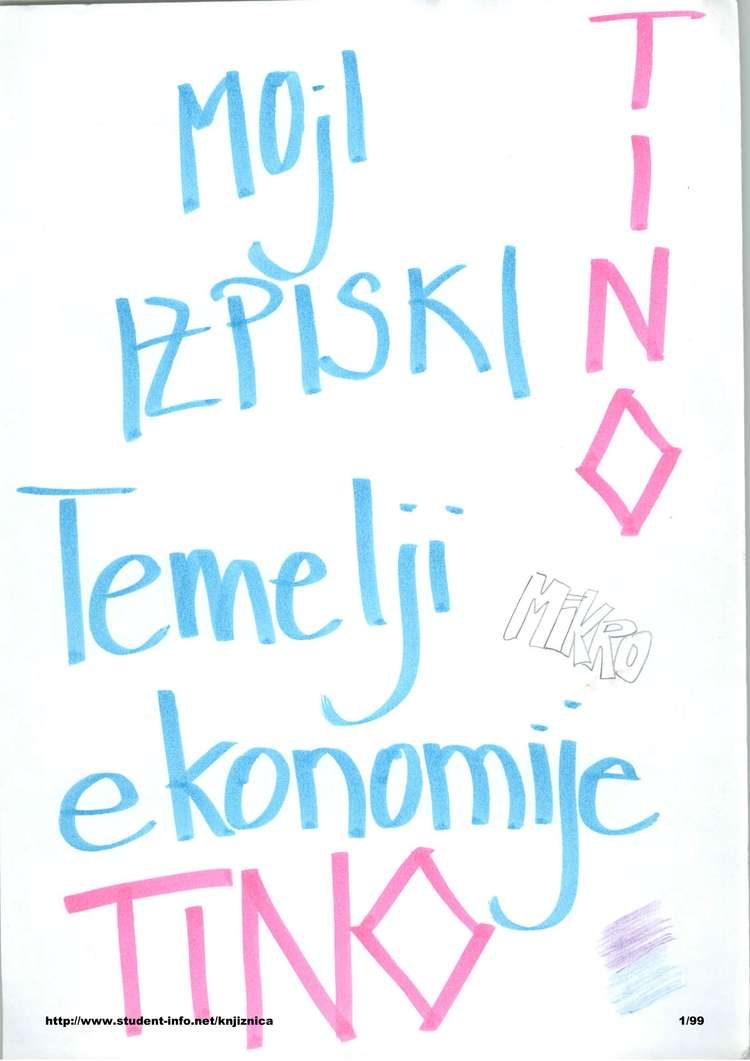 MOjI
IZPISKI
TINO
Temelji
MiKRO
ekonomije
TiNO
http://www.student-info.net/knjiznica
1/99